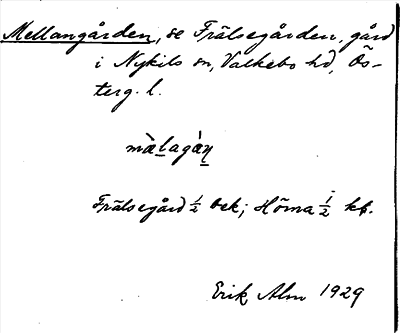 Mellangården, se Frälsegården, gård
i Nykils sn, Valkebo hd, Ös-
terg. l.
mæ̀lagá̀n̲
Frälsegård ½ bek; Hörna ½ kr.
Erik Alm 1929